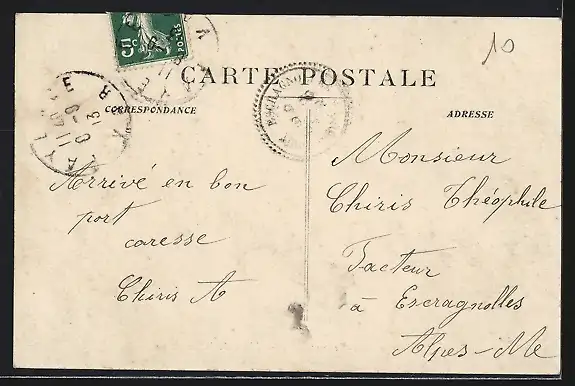 10
5c
POSTES
CARTE POSTALE
CORRESPONDANCE
ADRESSE
Arrivé en bon
port
caresse
Chiris A
Monsieur
Chiris Théophile
Facteur
à Escragnolles
Alpes-Me